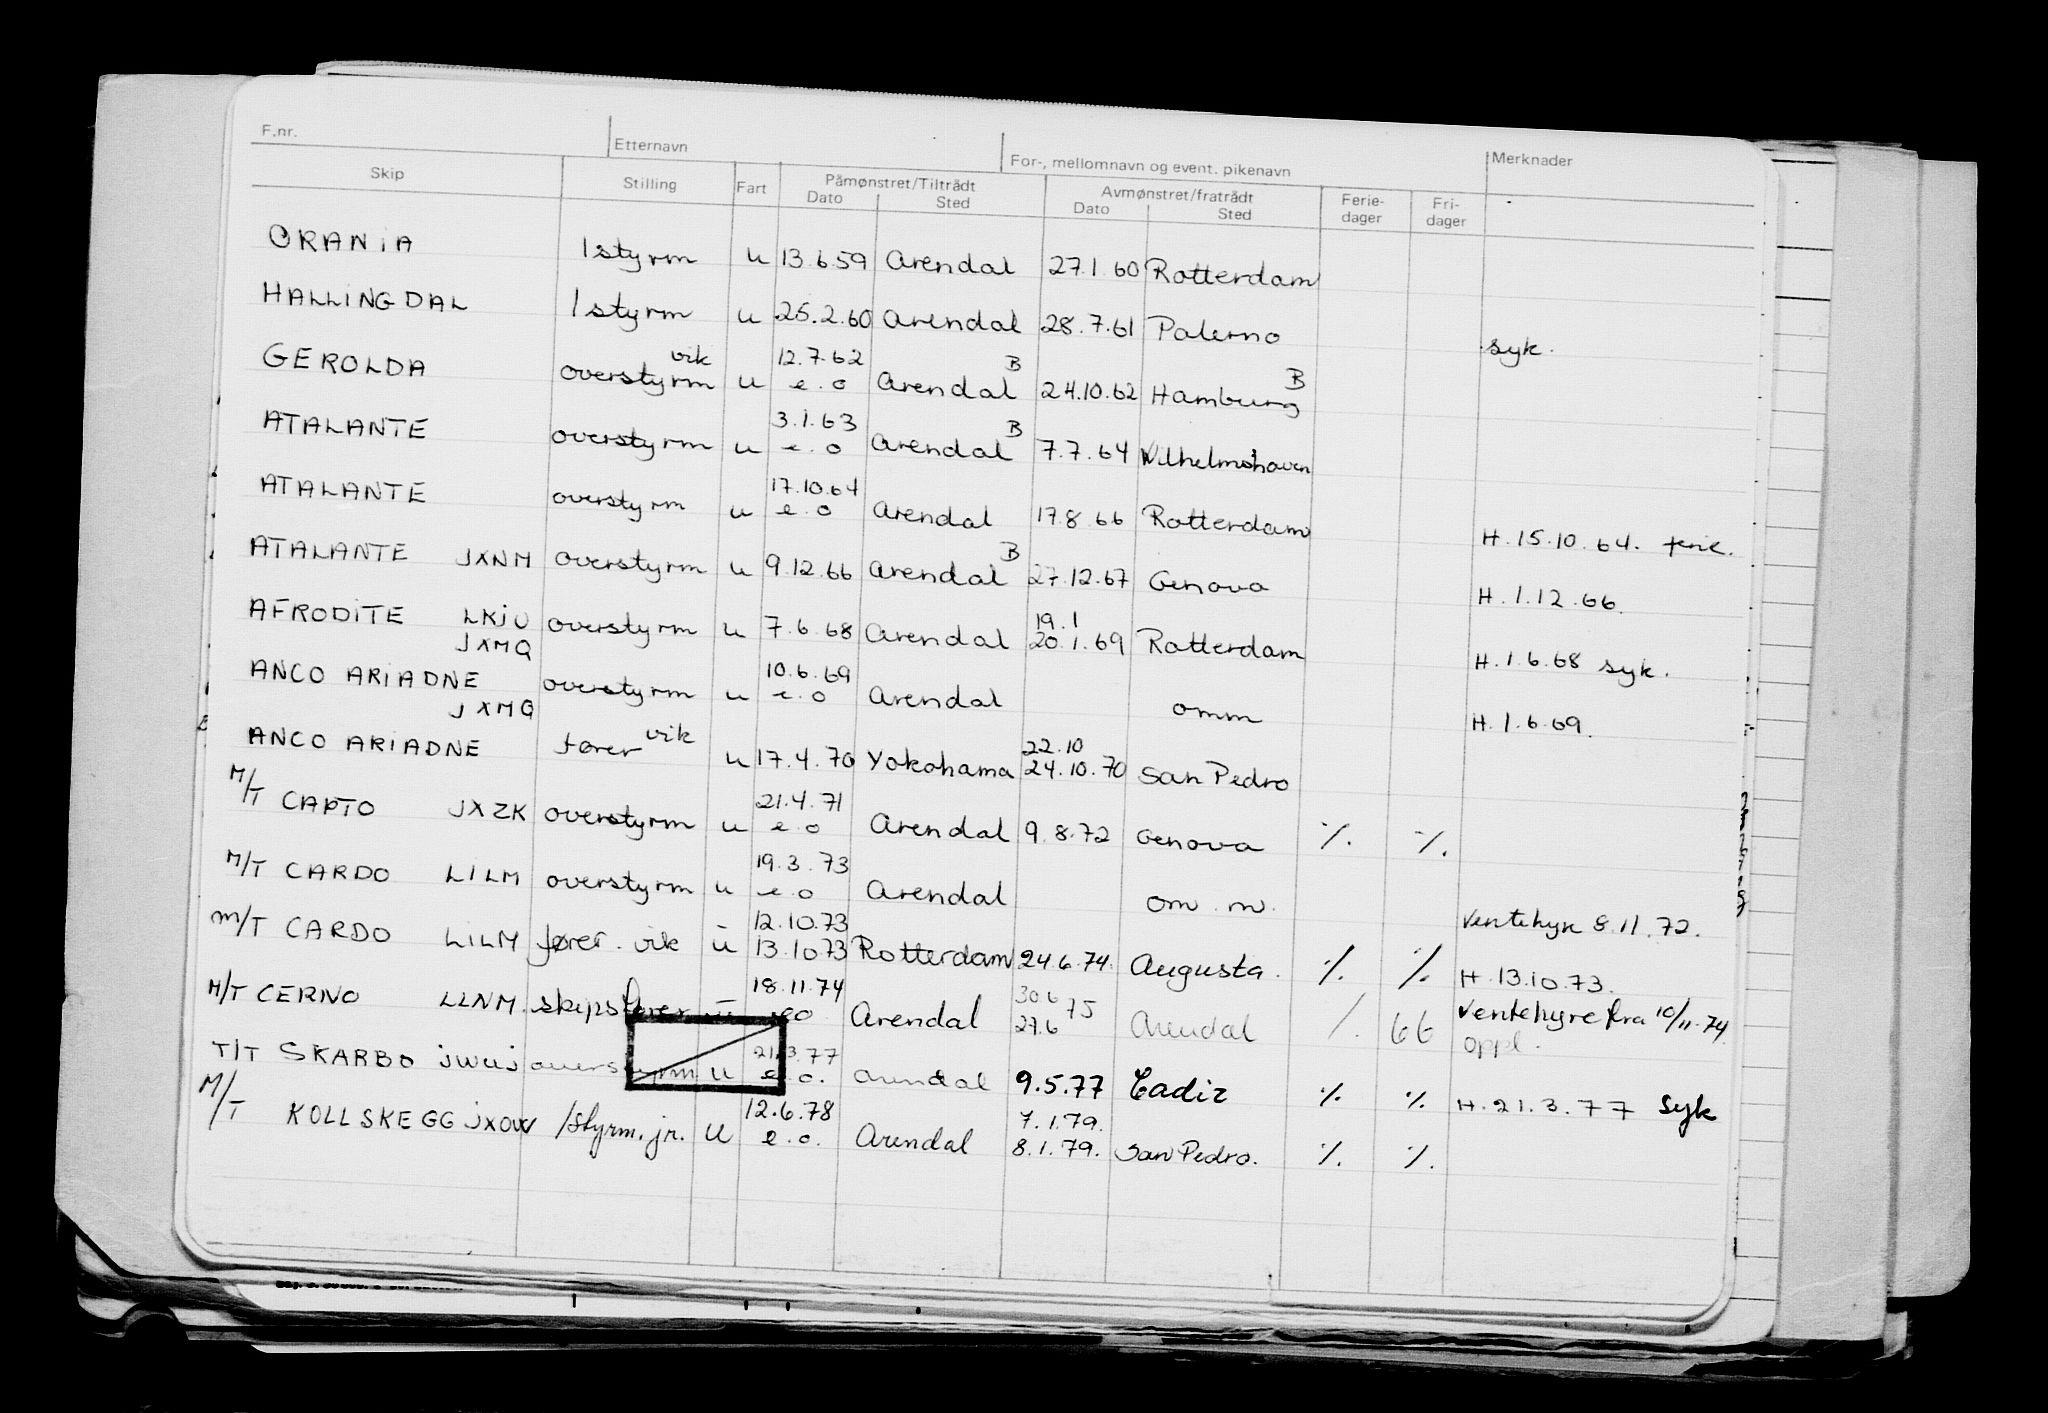 F.nr. Etternavn For-, mellomnavn og event. pikenavn Merknader
Skip Stilling Fart Påmønstret/Tiltrådt Avmønstret/fratrådt Ferie- Fri-
Dato Sted Dato Sted dager dager
ORANIA 1 styrm u 13.6.59 Arendal 27.1.60 Rotterdam
HALLINGDAL 1 styrm u 25.2.60 Arendal 28.7.61 Palerno syk.
vik 12.7.62 B B
GEROLDA overstyrm u e.o Arendal 24.10.62 Hamburg
3.1.63 B
ATALANTE overstyrm u e.o Arendal 7.7.64 Wilhelmshaven
17.10.64
ATALANTE overstyrm u e.o Arendal 17.8.66 Rotterdam H.15.10.64. ferie.
B
ATALANTE JXNM overstyrm u 9.12.66 Arendal 27.12.67 Genova H.1.12.66.
19.1
AFRODITE LKJU overstyrm u 7.6.68 Arendal 20.1.69 Rotterdam H.1.6.68 syk.
JXMQ 10.6.69
ANCO ARIADNE overstyrm u e.o Arendal omm H.1.6.69.
JXMQ
vik 22.10
ANCO ARIADNE fører u 17.4.70 Yokohama 24.10.70 San Pedro
21.4.71
M/T CAPTO JXZK overstyrm u e.o Arendal 9.8.72 Genova ./. ./.
19.3.73
M/T CARDO LILM overstyrm u e.o Arendal om.m. Ventehyre 8.11.72.
12.10.73
M/T CARDO LILM fører. vik u 13.10.73 Rotterdam 24.6.74. Augusta. ./. ./. H.13.10.73.
18.11.74 30.6 75
M/T CERNO LLNM. skipsfører u eo Arendal 27.6 Arendal /. 66 Ventehyre fra 10/11.74
oppl.
21.3.77
T/T SKARBO JWUJ overstyrm u e.o. Arendal 9.5.77 Cadiz ./. ./. H.21.3.77 Syk
12.6.78 7.1.79.
M/T KOLLSKEGG JXOW 1styrm. jr. U e.o. Arendal 8.1.79. San Pedro. ./. ./.